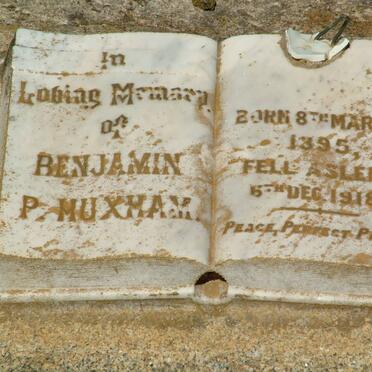 In
Loving Memory
of
BENJAMIN
P. MUXHAM
BORN 8TH MAR
1895,
FELL ASLEE
6TH DEC 1918
PEACE, PERFECT P